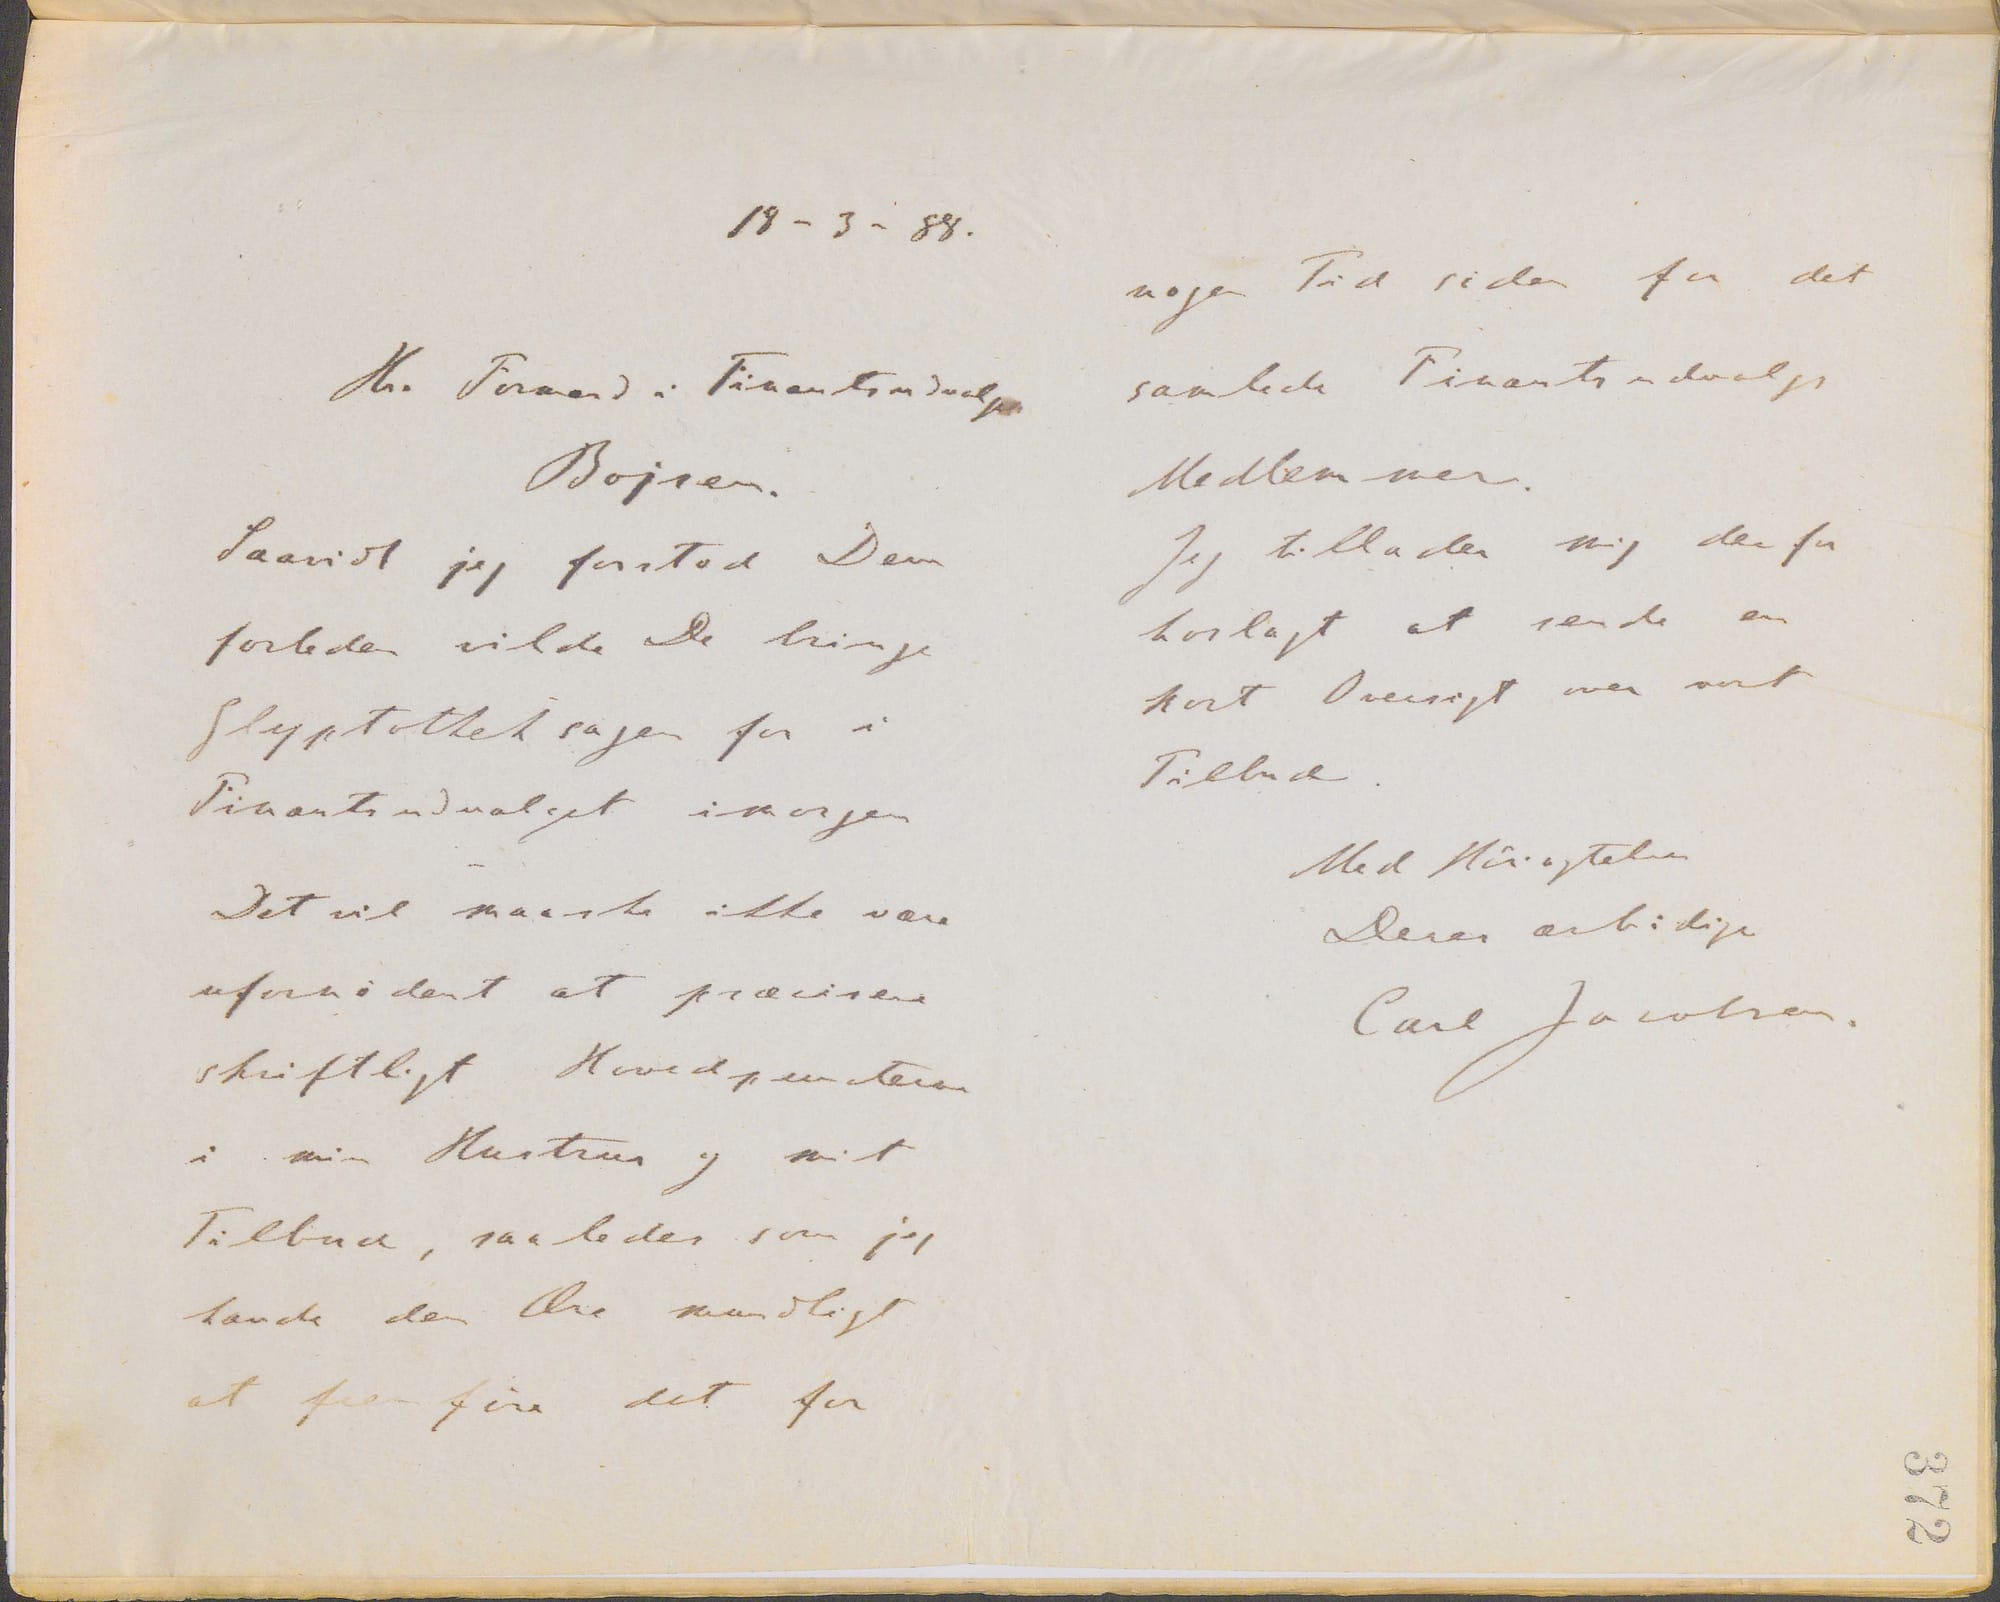 18 - 3 - 88.
Hr. Formand i Finantsudvalget
Bojsen.
Saavidt jeg forstod Dem
forleden vilde De bringe
Glyptotheksagen for i
Finantsudvalget imorgen
Det vil maaske ikke være
ufornödent at præcisere
skriftligt Hovedpuncterne
i min Hustrus og mit
Tilbud, saaledes som jeg
havde den Ære mundligt
at fremföre det for
nogen Tid siden for det
samlede Finantsudvalgs
Medlemmer.
Jeg tillader mig derfor
hoslagt at sende en
kort Oversigt over vort
Tilbud.
Med Höiagtelse
Deres ærbödige
Carl Jacobsen.
372